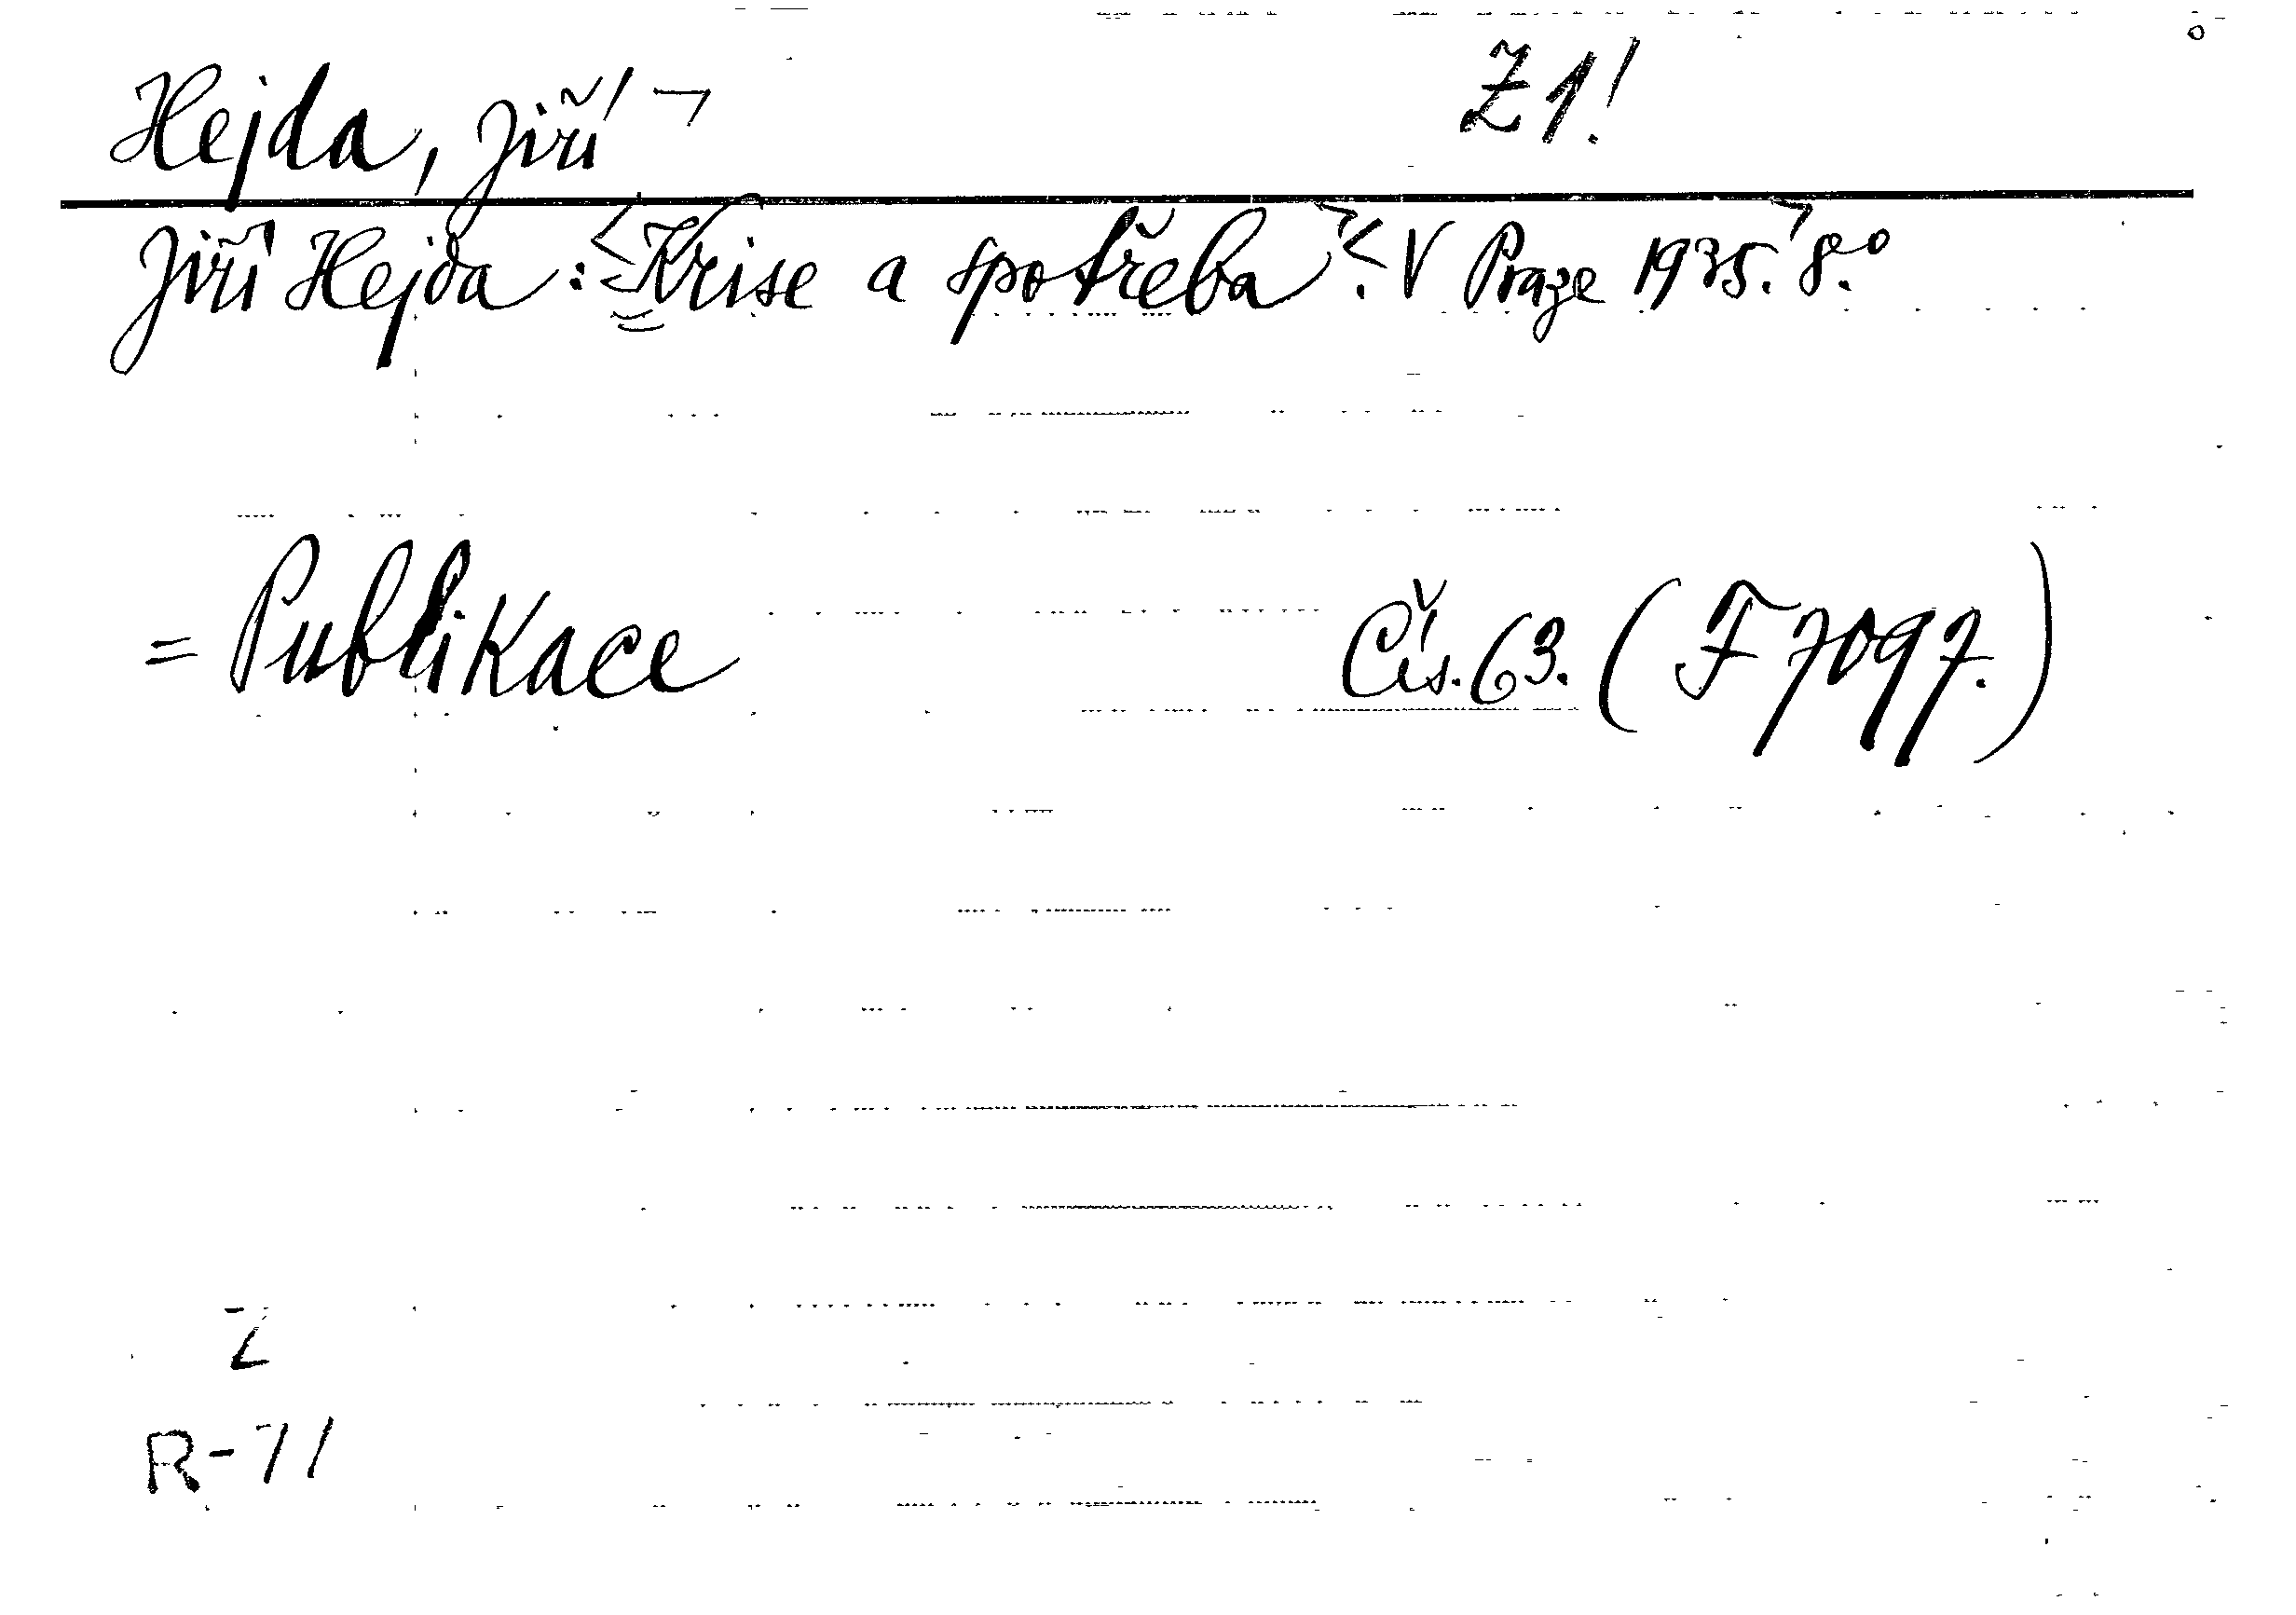 Hejda, Jiří Z1!
Jiří Hejda: Krise a spotřeba. V Praze 1935. 8.°
= Publikace Čís. 63. (F 7097.)
Z
R-71